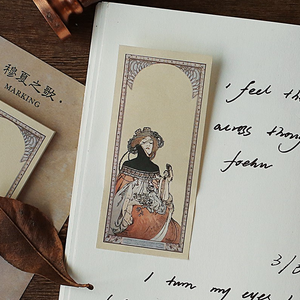 穆夏之歌·
MARKING
i feel th
across
foehn
3/
I turn my eyes